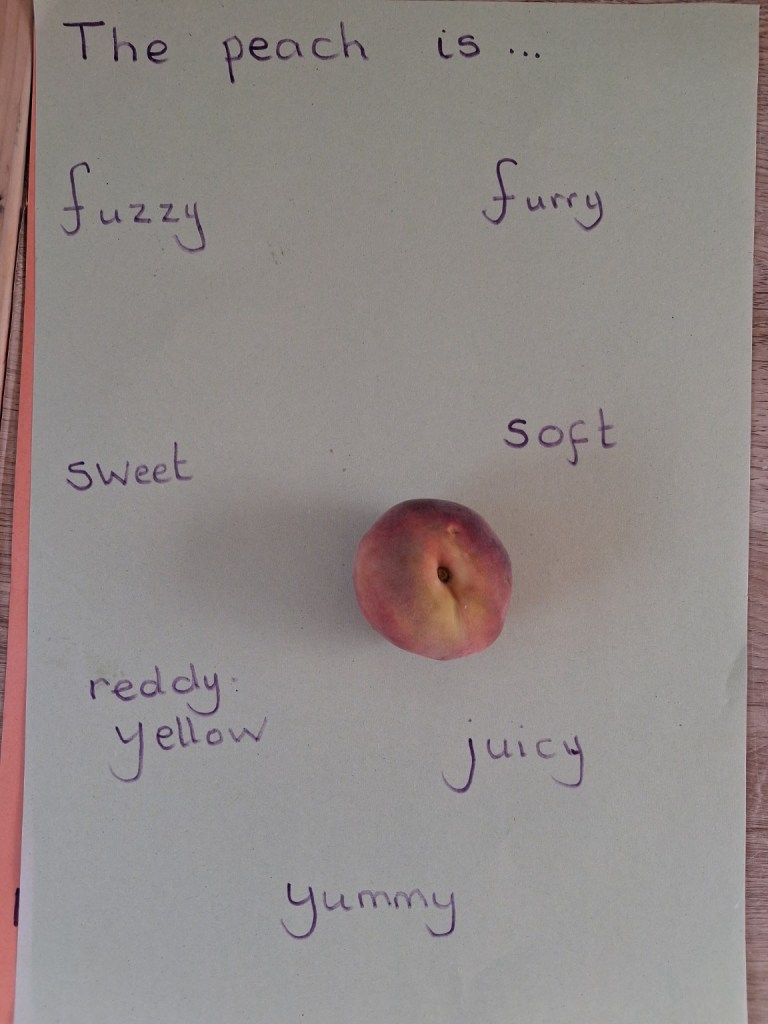 The peach is ...
fuzzy
furry
sweet
soft
reddy
yellow
juicy
yummy